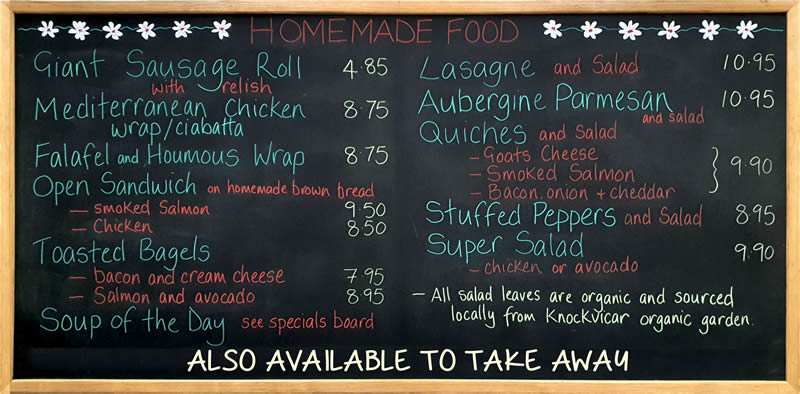 HOMEMADE FOOD
Giant Sausage Roll 4.85
with relish
Mediterranean Chicken 8.75
wrap/ciabatta
Falafel and Houmous Wrap 8.75
Open Sandwich on homemade brown bread
- smoked Salmon 9.50
- Chicken 8.50
Toasted Bagels
- bacon and cream cheese 7.95
- Salmon and avocado 8.95
Soup of the Day see specials board
Lasagne and Salad 10.95
Aubergine Parmesan 10.95
and salad
Quiches and Salad
- Goats Cheese
- Smoked Salmon 9.90
- Bacon, onion + cheddar
Stuffed Peppers and Salad 8.95
Super Salad 9.90
- chicken or avocado
- All salad leaves are organic and sourced
locally from Knockvicar organic garden.
ALSO AVAILABLE TO TAKE AWAY